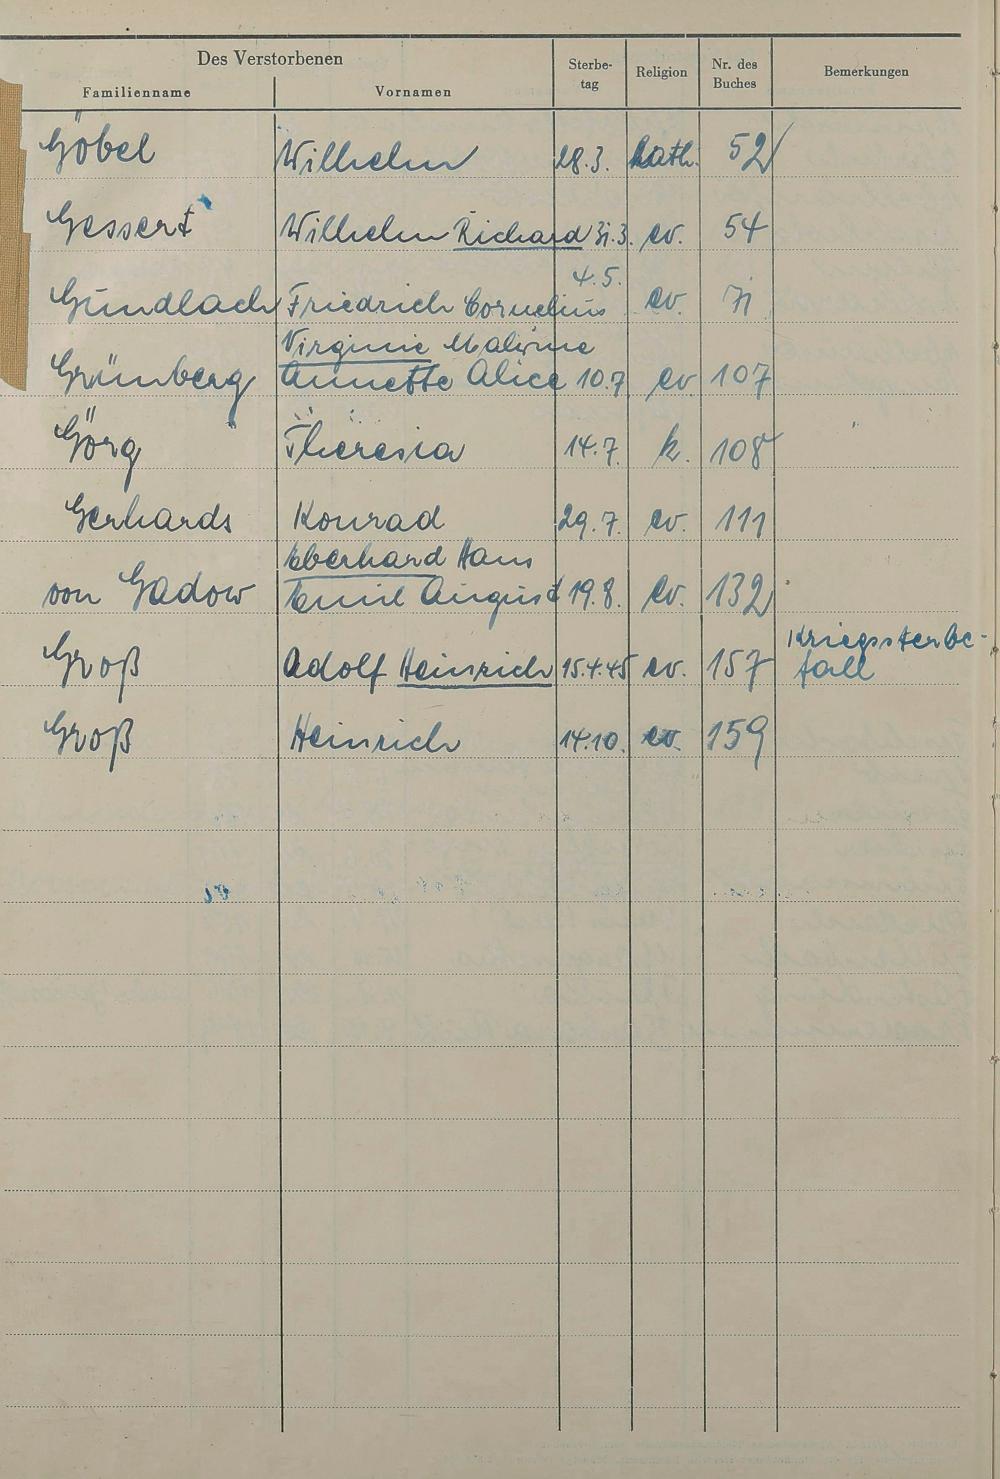 Des Verstorbenen Sterbe- Religion Nr. des Bemerkungen
Familienname Vornamen tag Buches
Göbel Wilhelm 28.3. kath. 52
Gessert Wilhelm Richard 31.3. ev. 54
4.5.
Gundlach Friedrich Cornelius ev. 71
Virginie
Grünberg Annette Alice 10.7 ev 107
Görg Theresia 14.7. k. 108
Gerhards Konrad 29.7. ev. 111
Eberhard Hans
von Gadow Emil August 19.8. ev. 132
Kriegssterbe-
Groß Adolf Heinrich 15.4.45 ev. 157 fall
Groß Heinrich 14.10. ev. 159